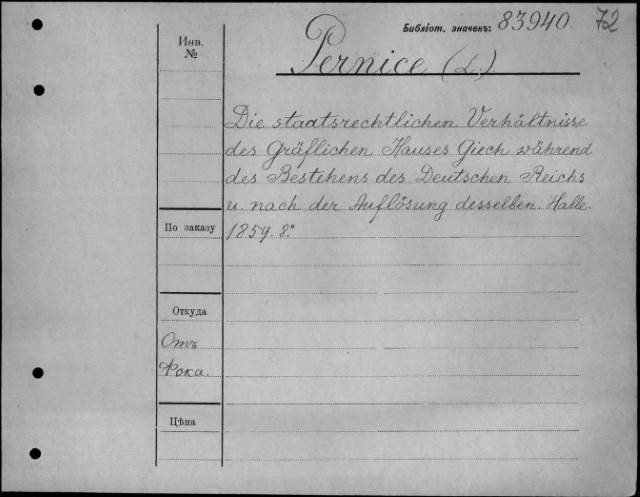 Библіот. значекъ: 83940. 72
Инв. №
Pernice (L.).
Die staatsrechtlichen Verhältnisse
des Gräflichen Hauses Giech während
des Bestehens des Deutschen Reichs
u. nach der Auflösung desselben. Halle.
По заказу
1859. 8.°
Откуда
Отъ
Фока.
Цѣна